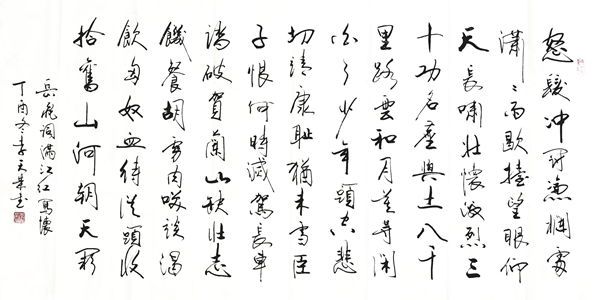 怒髮冲冠憑欄處
瀟瀟雨歇擡望眼仰
天長嘯壯懷激烈三
十功名塵與土八千
里路雲和月莫等閑
白了少年頭空悲
切靖康耻猶未雪臣
子恨何時滅駕長車
踏破賀蘭山缺壯志
饑餐胡虜肉笑談渴
飲匈奴血待從頭收
拾舊山河朝天闕
岳飛詞滿江紅寫懷
丁酉冬李天書